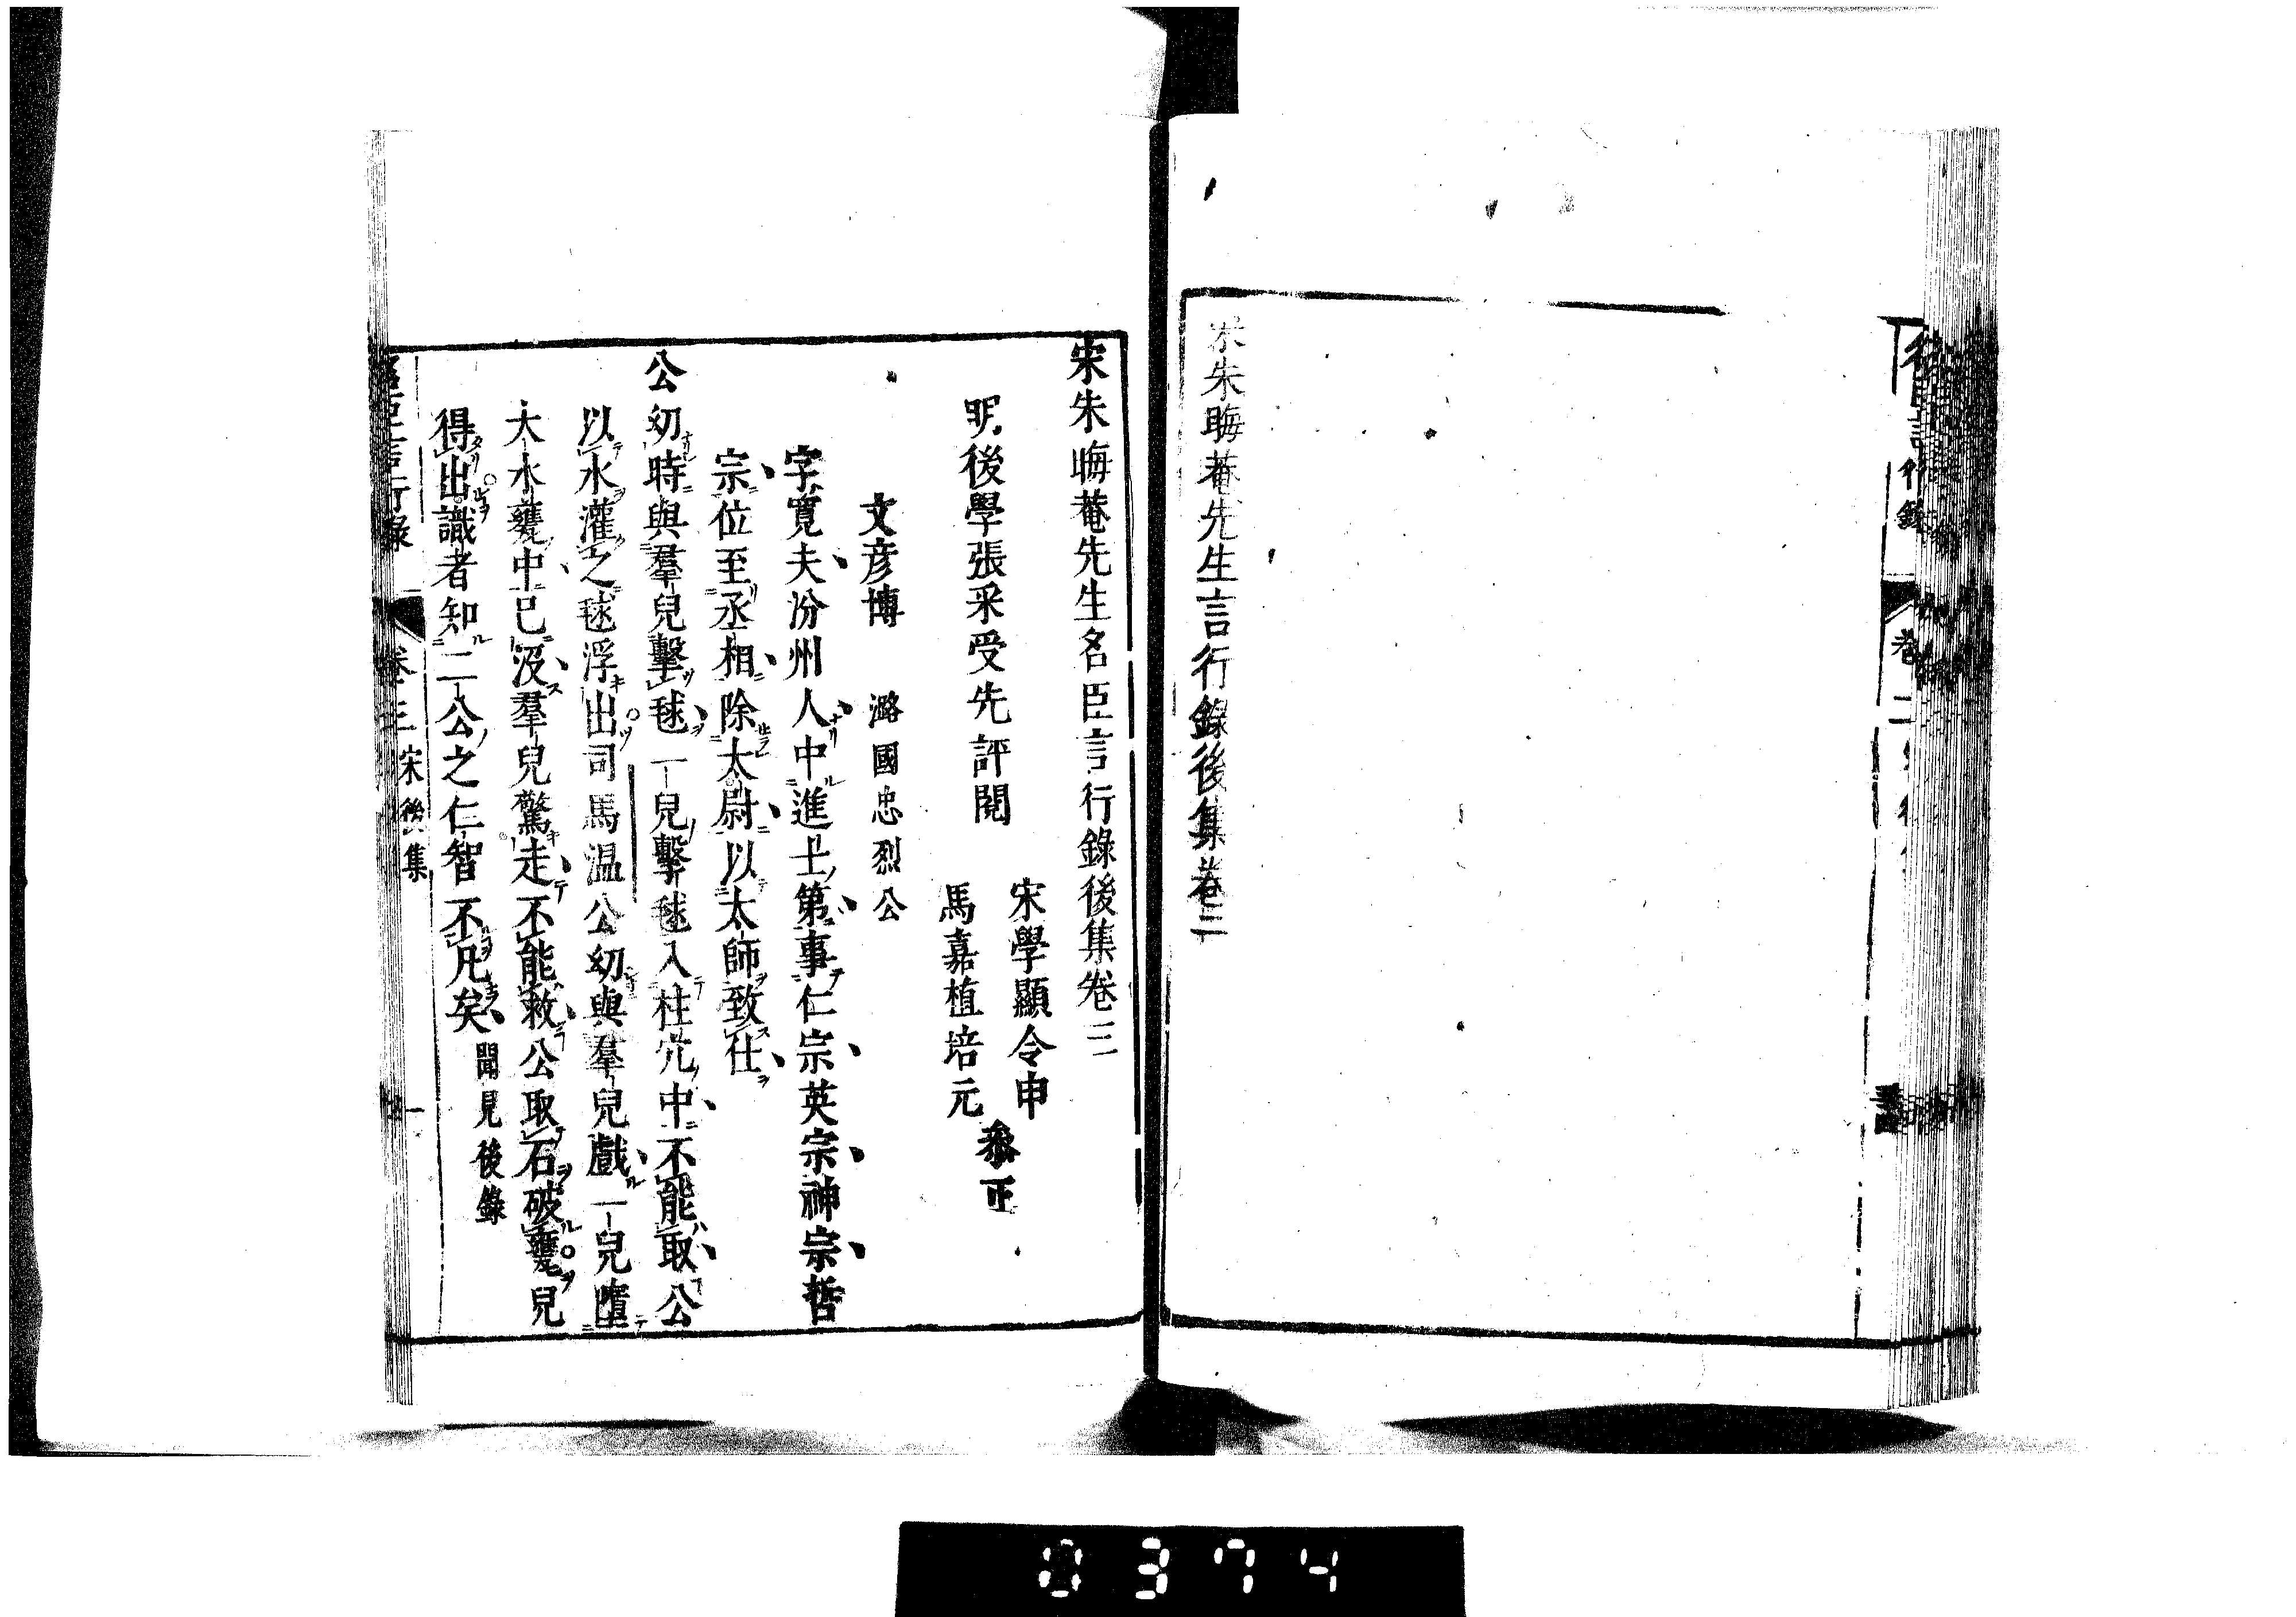 宋朱晦菴先生言行錄後集卷二
宋朱晦菴先生名臣言行錄後集卷三
明後學張采受先評閱
宋學顯令申
馬嘉植培元
叅正
文彦博 潞國忠烈公
字寬夫汾州人中進士第事仁宗英宗神宗哲
宗位至丞相除太尉以太師致仕
公幼時與羣兒擊毬一兒擊毬入柱穴中不能取公
以水灌之毬浮出司馬温公幼與羣兒戲一兒墮
大水甕中已沒羣兒驚走不能救公取石破甕兒
得出識者知二公之仁智不凡矣 聞見後錄
言行錄 卷三 宋後集 一
0374